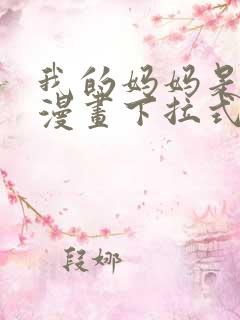 我的妈妈是
漫畫下拉式
段娜